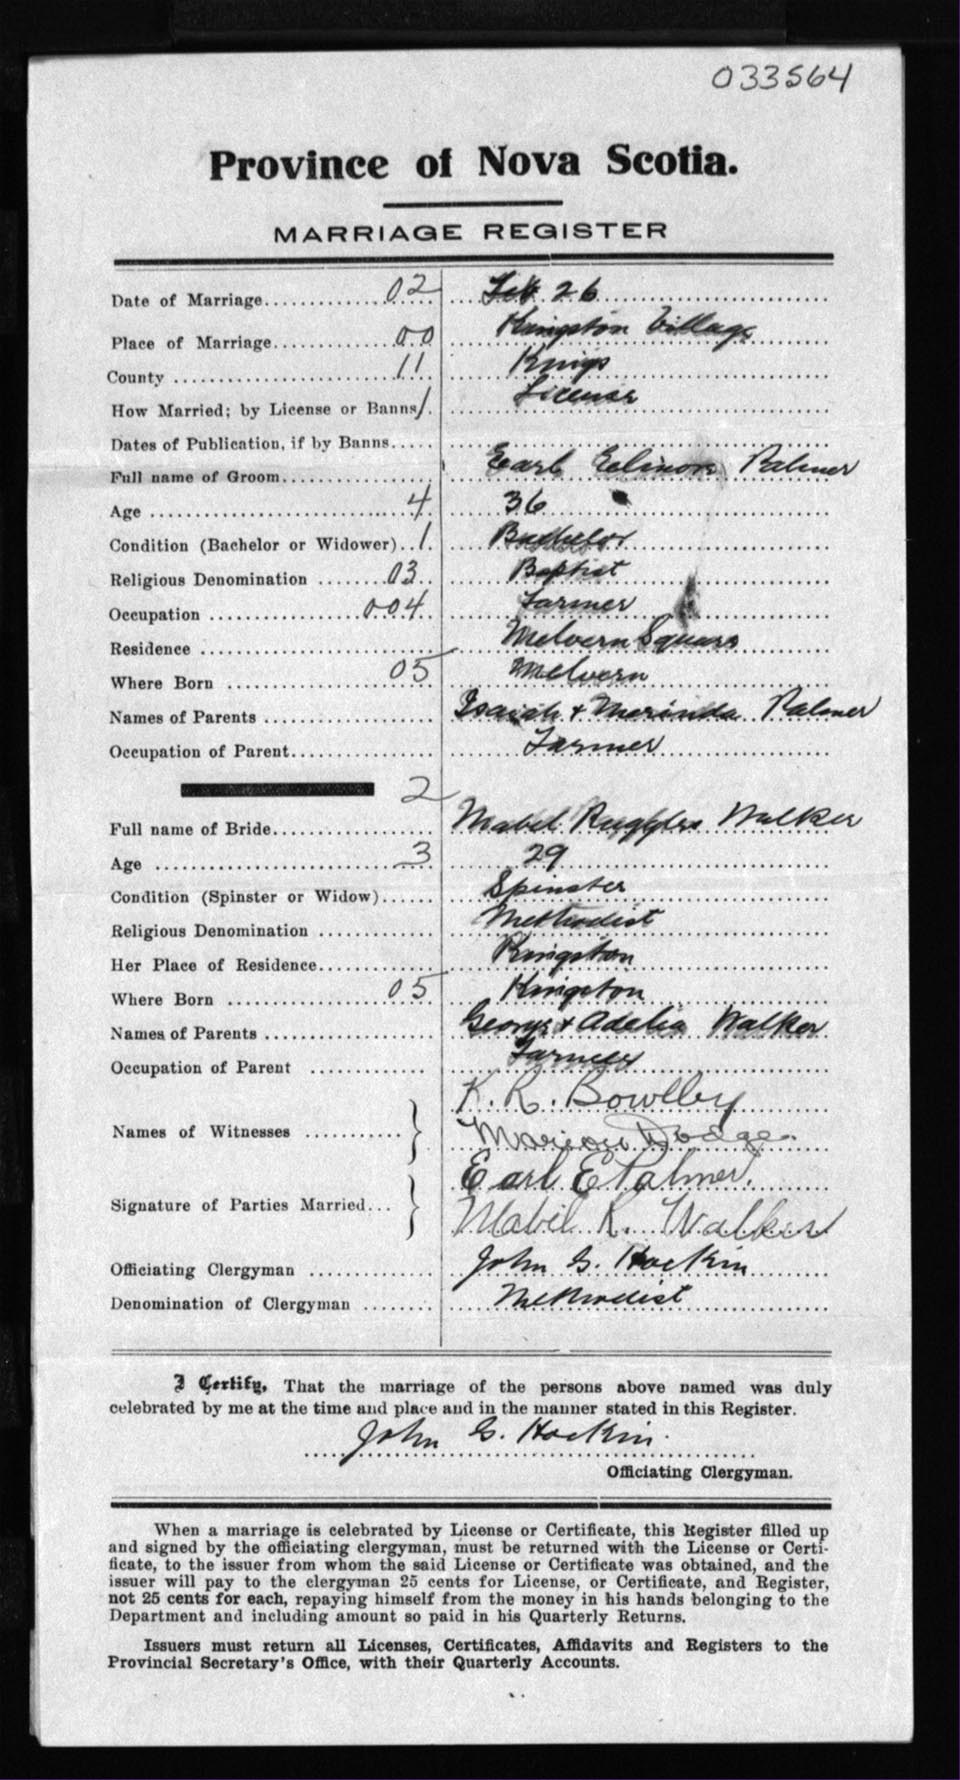 033564
Province of Nova Scotia.
MARRIAGE REGISTER
Date of Marriage 02 Feb 26
Place of Marriage 00 Kingston Village
County 11 Kings
How Married; by License or Banns 1 License
Dates of Publication, if by Banns
Full name of Groom Earl Palmer
Age 4 36
Condition (Bachelor or Widower) 1 Bachelor
Religious Denomination 03 Baptist
Occupation 004 Farmer
Residence Melvern Square
Where Born 05 Melvern
Names of Parents Isaiah + Merinda Palmer
Occupation of Parent Farmer
2
Full name of Bride Mabel Ruggles Walker
Age 3 29
Condition (Spinster or Widow) Spinster
Religious Denomination Methodist
Her Place of Residence Kingston
Where Born 05 Kingston
Names of Parents George + Adelia Walker
Occupation of Parent Farmer
K. R. Bowlby
Names of Witnesses Marion Dodge
Earl E Palmer.
Signature of Parties Married Mabel R. Walker
Officiating Clergyman John G. Hockin
Denomination of Clergyman Methodist
I Certify, That the marriage of the persons above named was duly
celebrated by me at the time and place and in the manner stated in this Register.
John G. Hockin.
Officiating Clergyman.
When a marriage is celebrated by License or Certificate, this Register filled up
and signed by the officiating clergyman, must be returned with the License or Certi-
ficate, to the issuer from whom the said License or Certificate was obtained, and the
issuer will pay to the clergyman 25 cents for License, or Certificate, and Register,
not 25 cents for each, repaying himself from the money in his hands belonging to the
Department and including amount so paid in his Quarterly Returns.
Issuers must return all Licenses, Certificates, Affidavits and Registers to the
Provincial Secretary's Office, with their Quarterly Accounts.